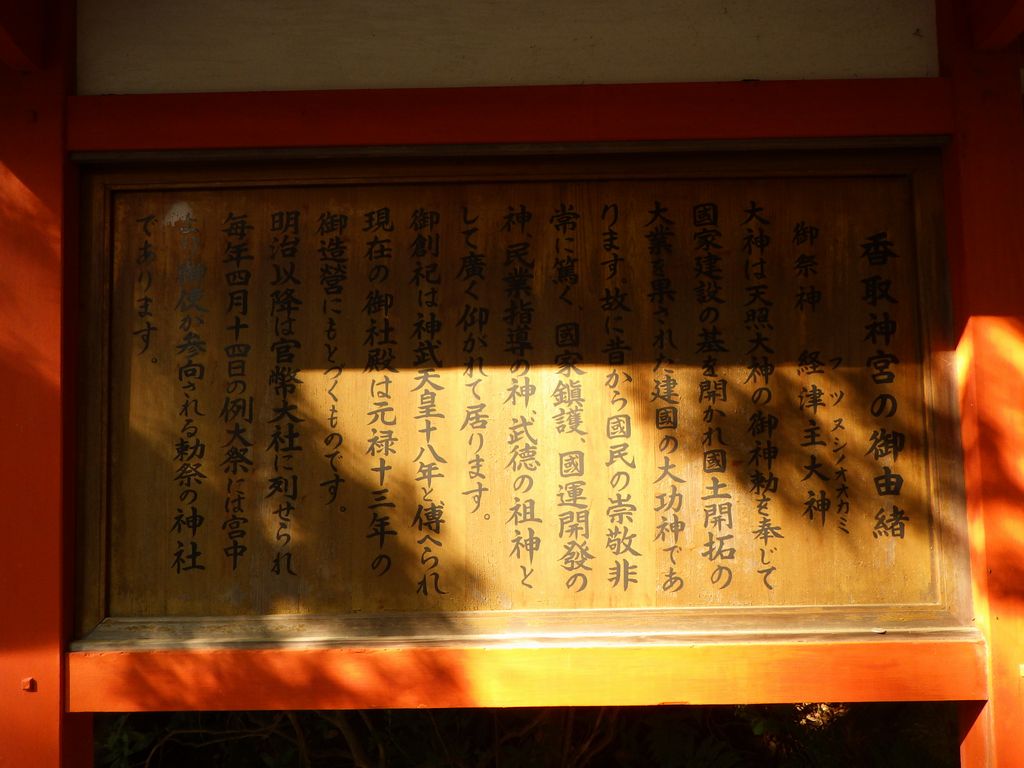 香取神宮の御由緒
御祭神 経津主大神
フツヌシノオオカミ
大神は天照大神の御神勅を奉じて
國家建設の基を開かれ國土開拓の
大業を果された建國の大功神であ
ります。故に昔から國民の崇敬非
常に篤く、國家鎭護、國運開發の
神、民業指導の神、武徳の祖神と
して廣く仰がれて居ります。
御創祀は神武天皇十八年と傳へられ
現在の御社殿は元禄十三年の
御造營にもとづくものです。
明治以降は官幣大社に列せられ
毎年四月十四日の例大祭には宮中
御使が参向される勅祭の神社
であります。